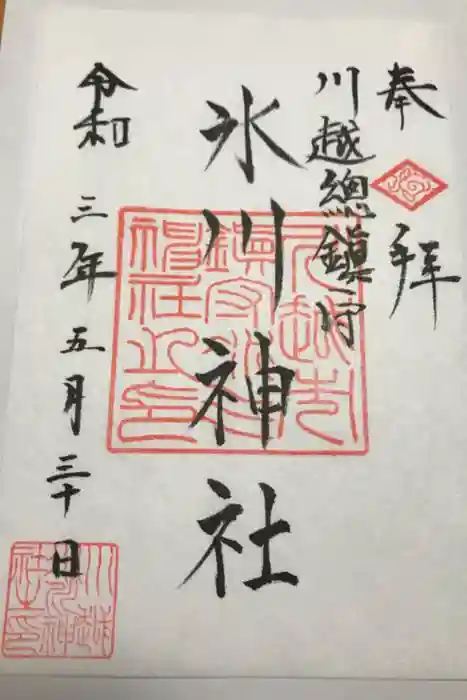 奉拝
川越總鎮守
氷川神社
令和三年五月三十日